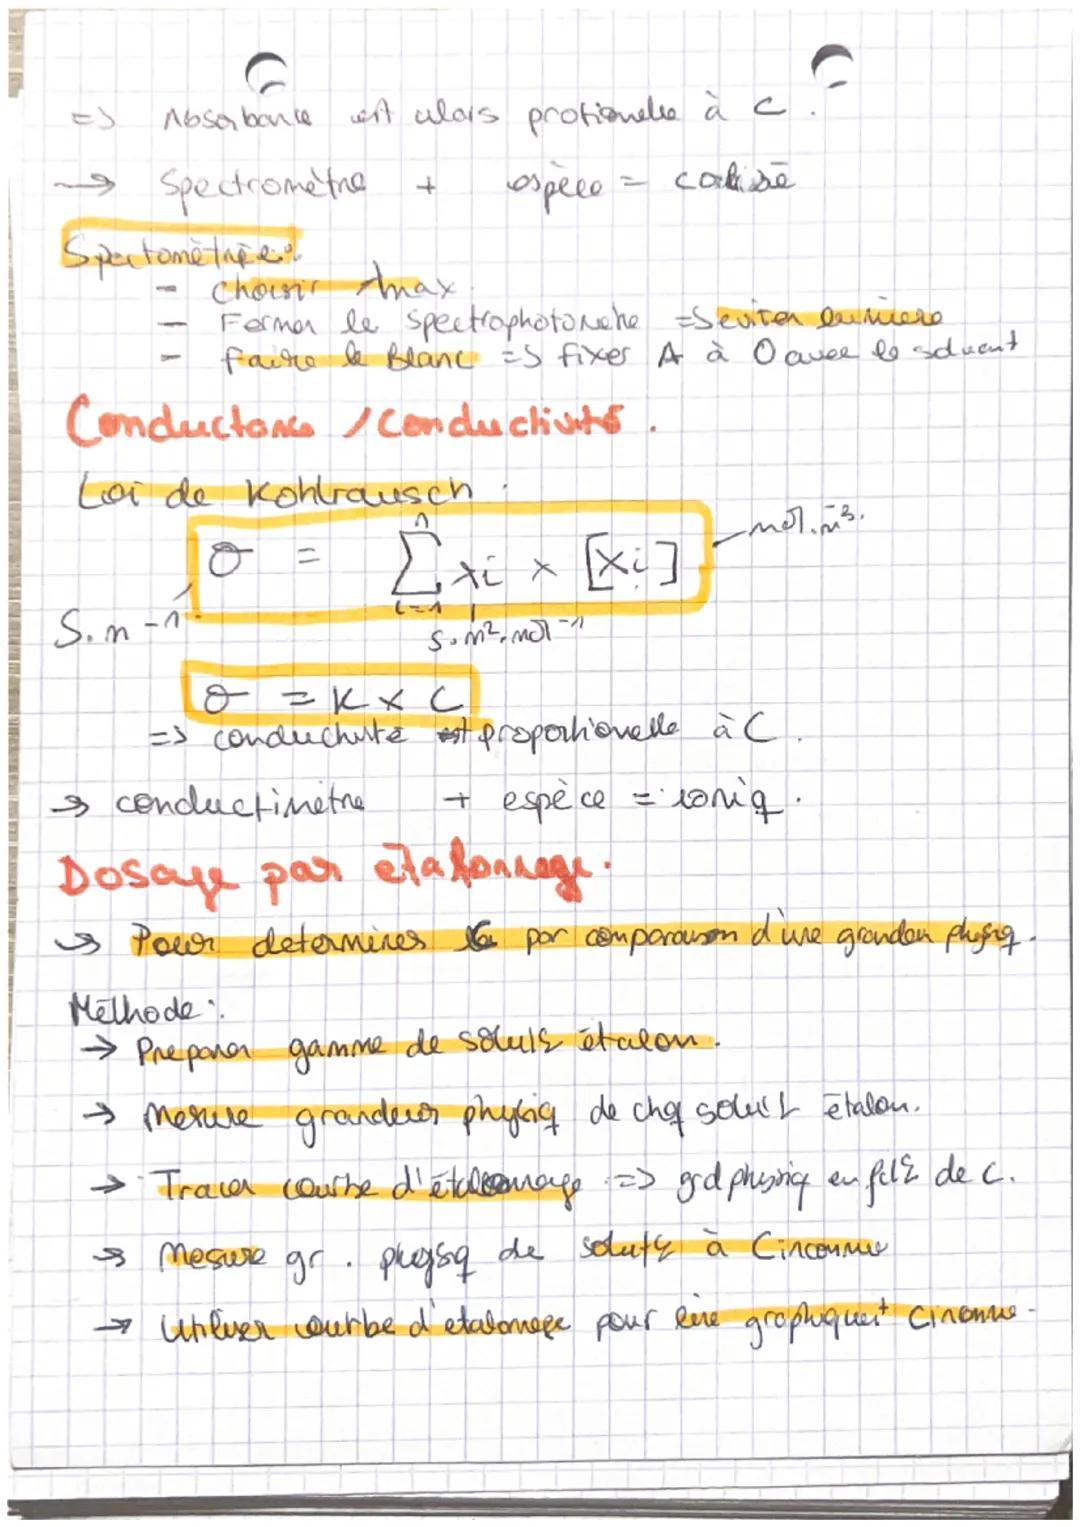 => Absorbance est alors protionelle à C.
→ Spectromètre + espèce = colisé
Spectométrie :
- choisir λmax.
- Fermer le spectrophotomètre => éviter lumière
- faire le Blanc => fixer A à 0 avec le solvant
Conductance / Conductivité.
Loi de Kohlrausch :
σ = Σ λi × [Xi]
n
i=1
mol.m⁻³.
S.m⁻¹
S.m².mol⁻¹
σ = K × C
=> conductivité est proportionelle à C.
→ conductimètre + espèce = ioniq.
Dosage par etalonnage.
→ Pour determiner par comparaison d'une grandeur physiq.
Méthode :
→ Preparer gamme de solut° étalon.
→ Mesure grandeur physiq de chq solut° étalon.
→ Tracer courbe d'étalonnage => grd physiq en fct° de C.
→ Mesure gr. physq de solut° à Cinconnue
→ Utiliser courbe d'etalonage pour lire graphiquet Cinconnue.